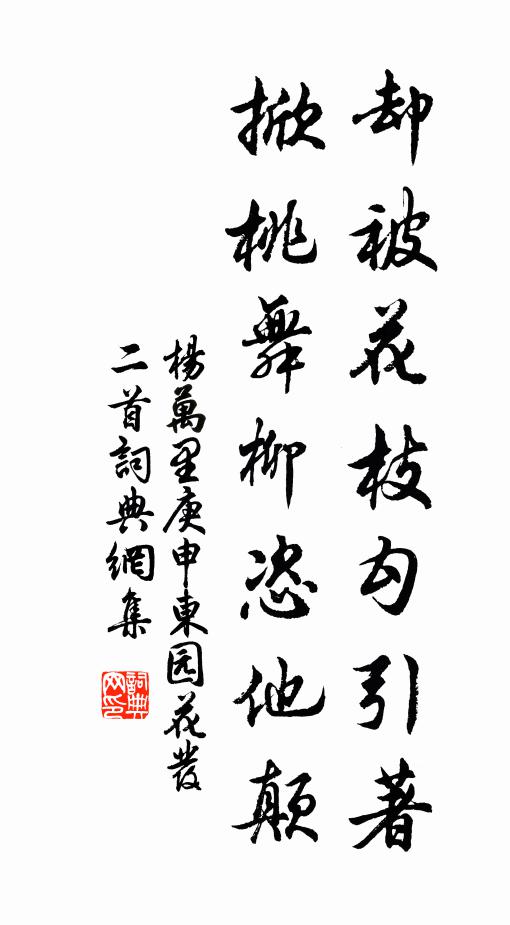 却被花枝勾引著
掀桃舞柳恣他颠
楊萬里庚申東园花發
二首詞典網集
詞典
网印